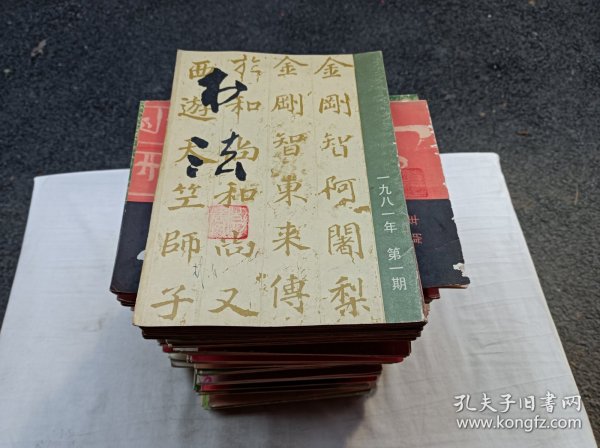 书法
金剛智阿闍梨
金剛智東来傳
於和尚和尚又
西遊天竺師子
一九八一年 第一期
孔夫子旧书网
www.kongfz.com